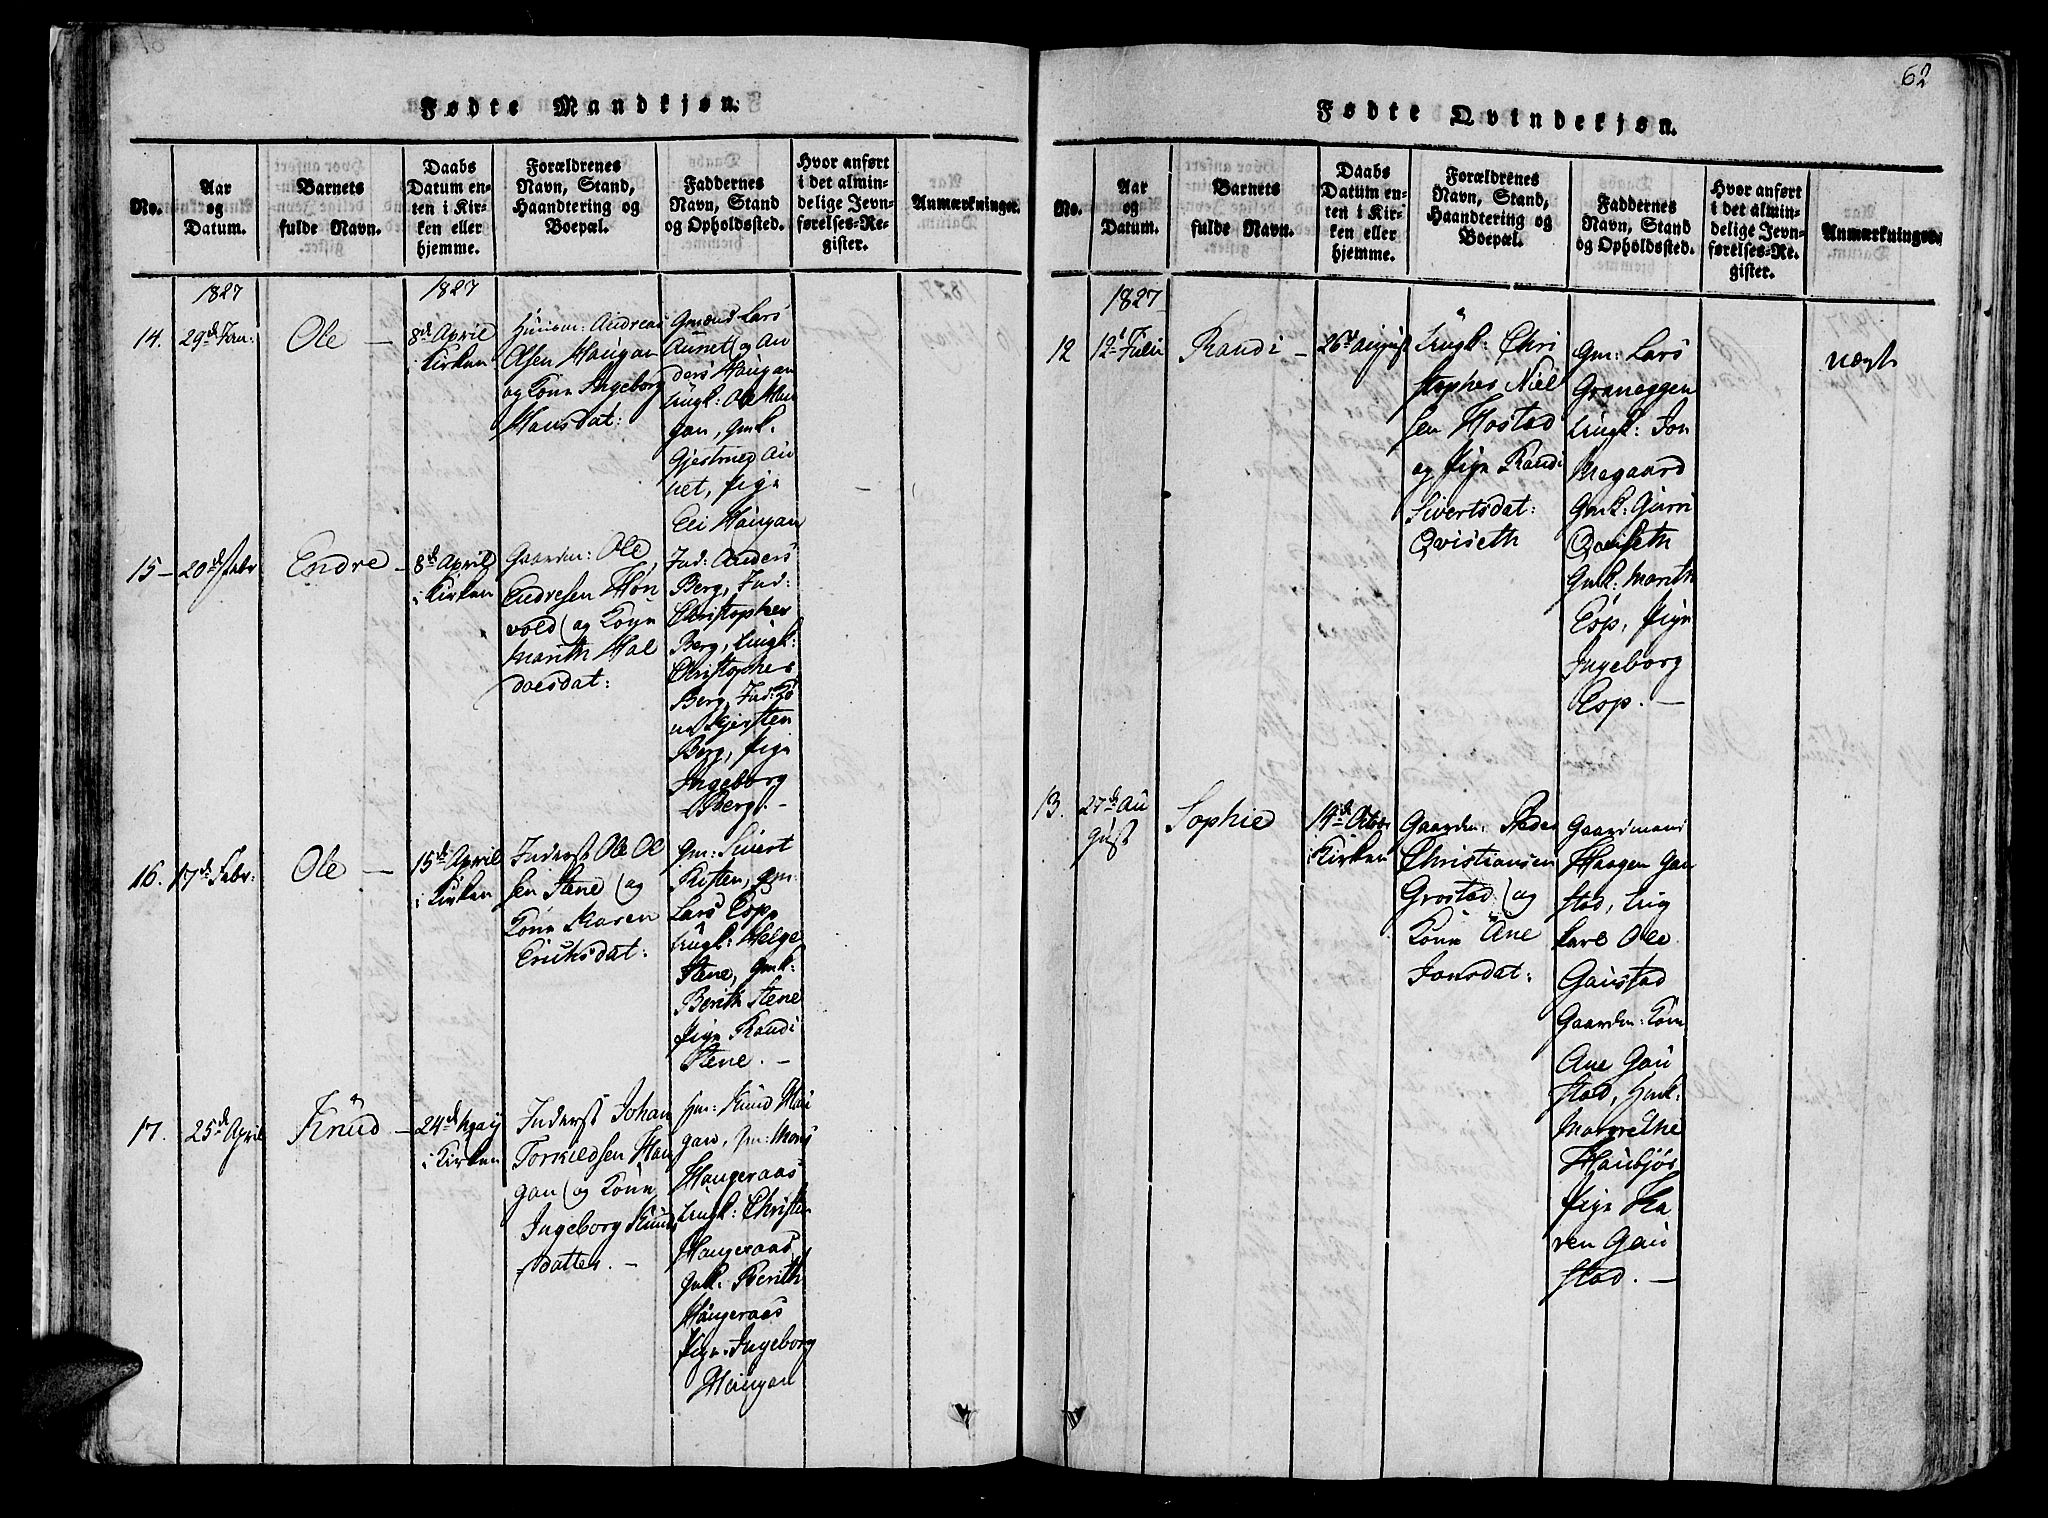 62
Fødte Mandkjøn.
No.
Aar
og
Datum.
Barnets
fulde Navn.
Daabs
Datum en-
ten i Kir-
ken eller
hjemme.
Forældrenes
Navn, Stand,
Haandtering og
Boepæl.
Faddernes
Navn, Stand
og Opholdssted.
Hvor anført
i det almin-
delige Jevn-
førelses-Re-
gister.
Anmærkninger.
1827
1827
14.
29de Jan:
Ole —
8de April
i Kirken
Huusm: Andreas
Olsen Haugan
og Kone Ingeborg
Hansdat:
Gmænd Lars
Aunet (og An
ders Haugan
Ungk: Ole Hau
gan, Gmk.
Gjestrued Au
net, Pige
Eli Haugan
15 —
20de Febr
Endre —
8de April
i Kirken
Gaardm: Ole
Endresen Høn
vold (og Kone
Marith Hal
doesdat:
Ind: Anders
Berg, Ind:
Christopher
Berg, Ungk:
Christopher
Berg, Ind: Ko
ne Kjersten
Berg, Pige
Ingeborg
Berg. —
16.
17de Febr:
Ole —
15de April
i Kirken
Inderst Ole Ol
sen Stene (og
Kone Karen
Eriksdat:
Gm: Sivert
Risten, Gm:
Lars Esp,
Ungk: Helge
Stene, Gmk:
Berith Stene
Pige Randi
Stene. —
17.
25de April
Knud —
24de Maij
i Kirken
Inderst Johan
Torkildsen Hau
gan (og Kone
Ingeborg Knud
datter. —
Hm: Knud Hau
gan, Gm: Mons
Haugeraas
Ungk: Christen
Haugeraas
Gmk. Berith
Haugeraas
Pige Ingeborg
Haugan
Fødte Qvindekjøn.
No.
Aar
og
Datum.
Barnets
fulde Navn.
Daabs
Datum en-
ten i Kir-
ken eller
hjemme.
Forældrenes
Navn, Stand,
Haandtering og
Boepæl.
Faddernes
Navn, Stand
og Opholdssted.
Hvor anført
i det almin-
delige Jevn-
førelses-Re-
gister.
Anmærkninger.
1827
12
12te Julii
Randi —
26de August
Ungk: Chri
stopher Niel
sen Hostad
og Pige Randi
Sivertsdat:
Qviseth
Gm: Lars
Graneggen
Ungk: Jon
Megaard
Gmk: Gurri
Qviseth
Gmk: Marith
Esp, Pige
Ingeborg
Esp. —
uægte
13.
27de Au
gust
Sophie
14de Octobr
i Kirken
Gaardm: Peder
Christiansen
Grostad (og
Kone Ane
Jonsdat:
Gaardmand
Haagen Gau
stad, Ung
karl Ole
Gaustad
Gaardm: Kone
Ane Gau
stad, Hmk:
Margrethe
Haubjør
Pige Ka
ren Gau
stad. —